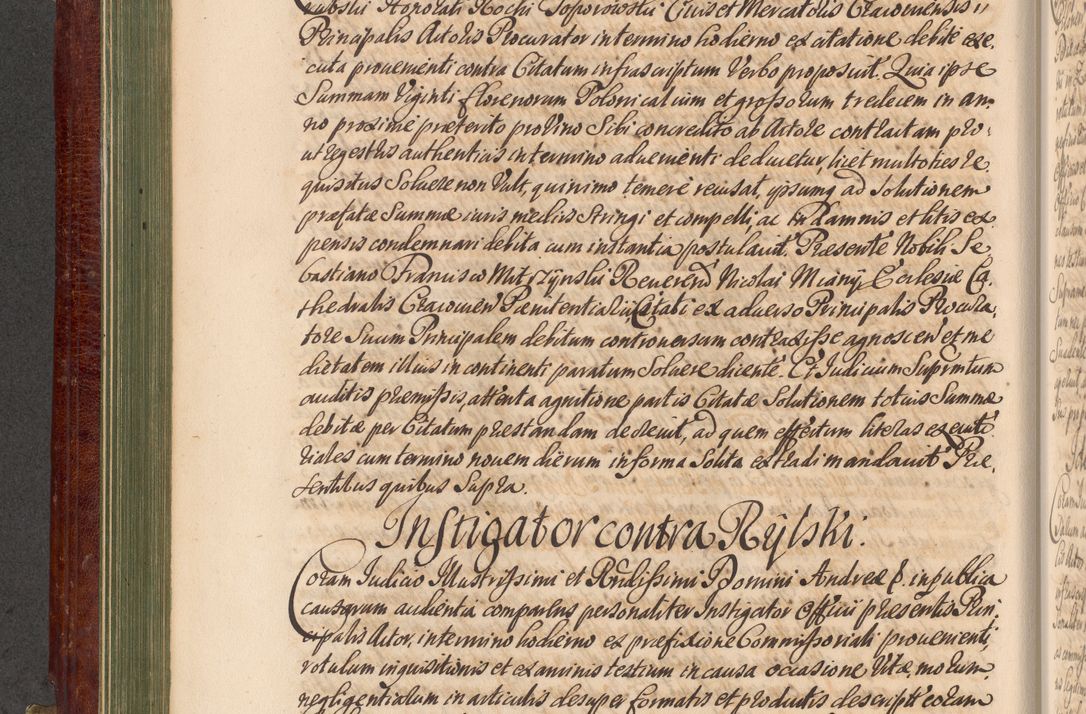 rubskii Honorati Rochi Toporowskii Civis et Mercatoris Cracoviensis
Principalis Actoris Procurator in termino hodierno ex citatione debite exe
cuta provenienti contra Citatum infrascriptum Verbo proposuit. Quia ipse
Summam Viginti florenorum Polonicalium et grossorum tredecem in an„
no proxime præterito pro Vino Sibi concredito ab Actore contractam pro„
ut regestris authenticis in termino advenienti deducetur, licet multoties re
quisitus Solvere non Vult, quinimo temere recusat, ipsumq ad Solutionem
præfatæ Summæ iuris mediis Stringi et compelli, ac in Damnis et litis ex
pensis condemnari debita cum instantia postulavit. Præsente Nobili Se
bastiano Francisco Mitrzynskii Reverend Nicolai Miany Ecclesiæ Ca„
thedralis Cracovien Pænitentiarii, Citati ex adverso Principalis Procura„
tore Suum Principalem debitum controversum contraxisse agnoscen et me
dietatem illius in continenti paratum Solvere dicente. Et Judicium Suprmtum
auditis præmissis, attenta agnitione partis Citatæ Solutionem totius Summæ
debitæ per Citatum præstandam decrevit, ad quem effectum literas executo
riales cum termino novem dierum in forma Solita extradi mandavit Præ„
sentibus quibus Supra.
Instigator contra Rÿlski.
Coram Judicio Illustrissimi et Rndissimi Domini Andreæ E. in publica
causarum audientia comparens personaliter Instigator Officii præsentis Prin
cipalis Actor, in termino hodierno ex præfixione Commissoriali provenienti,
rotulum inquisitionis et examinis testium in causa occasione Vitæ, morum,
negligentiarum in articulis desuper formatis et productis descript coram